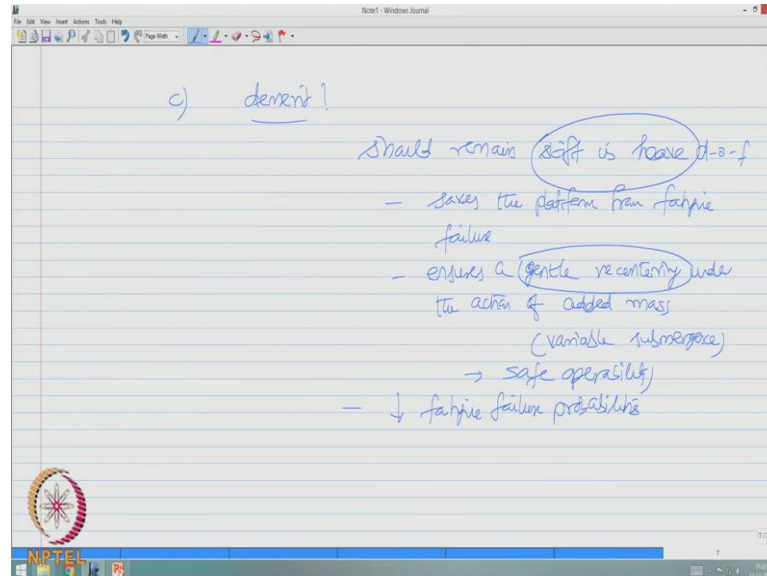 Note1 - Windows Journal
File Edit View Insert Actions Tools Help
Page Width
c) demerit!
should remain stiff is heave d-o-f
- saves the platform from fatigue
failure
- ensures a gentle recentering under
the action of added mass
(variable submergence)
→ safe operability
- ↓ fatigue failure probabilities
NPTEL